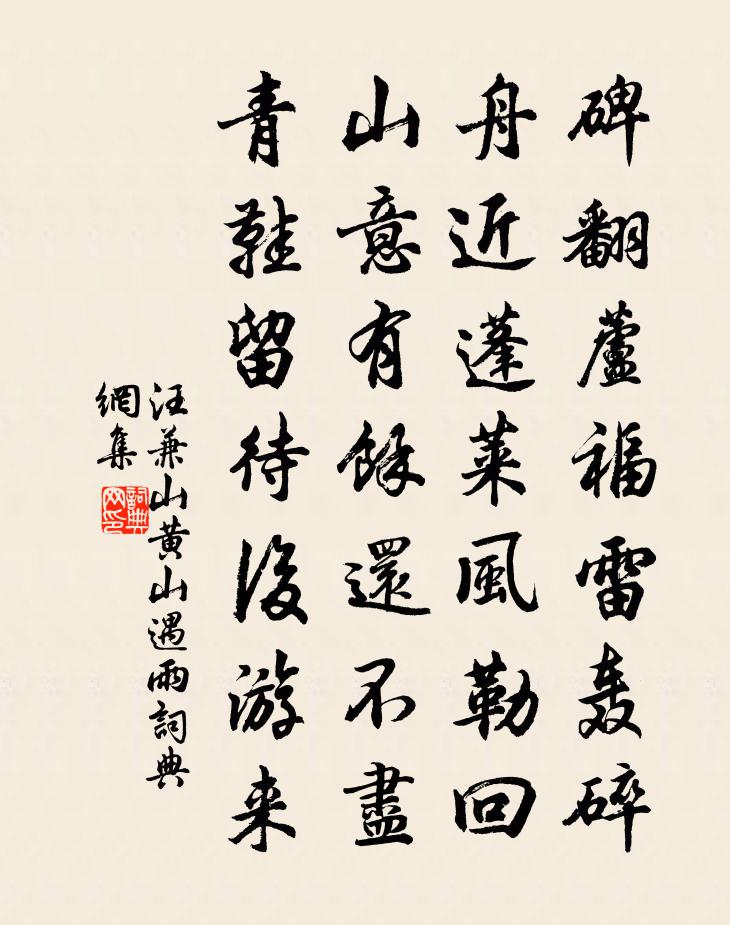 碑翻蘆福雷轰碎
舟近蓬莱風勒回
山意有餘還不盡
青鞋留待後游来
汪兼山黄山遇雨詞典
網集
詞典网印